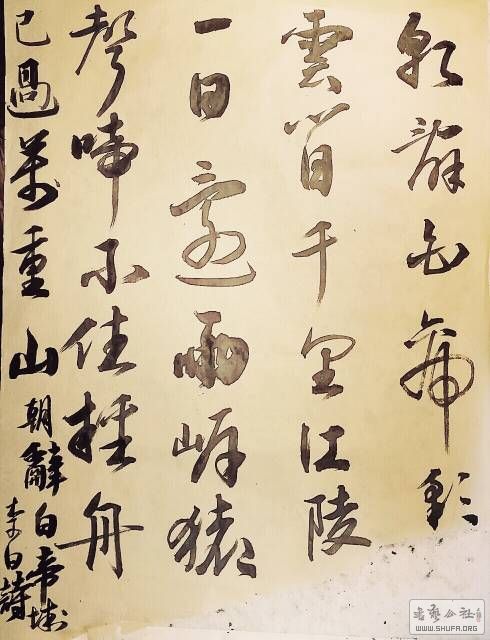 朝辭白帝彩
雲間千里江陵
一日還兩岸猿
聲啼不住輕舟
已過萬重山朝辭白帝城
李白詩
书艺公社
WWW.SHUFA.ORG